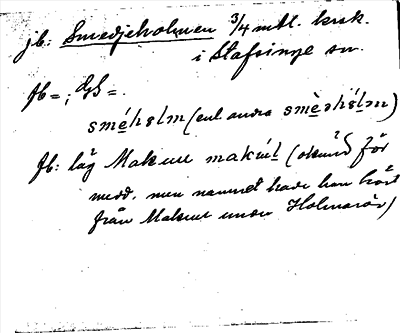 jb: Smedjeholmen 3/4 mtl. krsk.
i Stafsinge sn.
fb = ; GS = .
sméholm (enl andra smèdhólm)
fb: låg Makun makúṇ (okänd för
medd. men namnet hade han hört
från Makun under Holmarör)